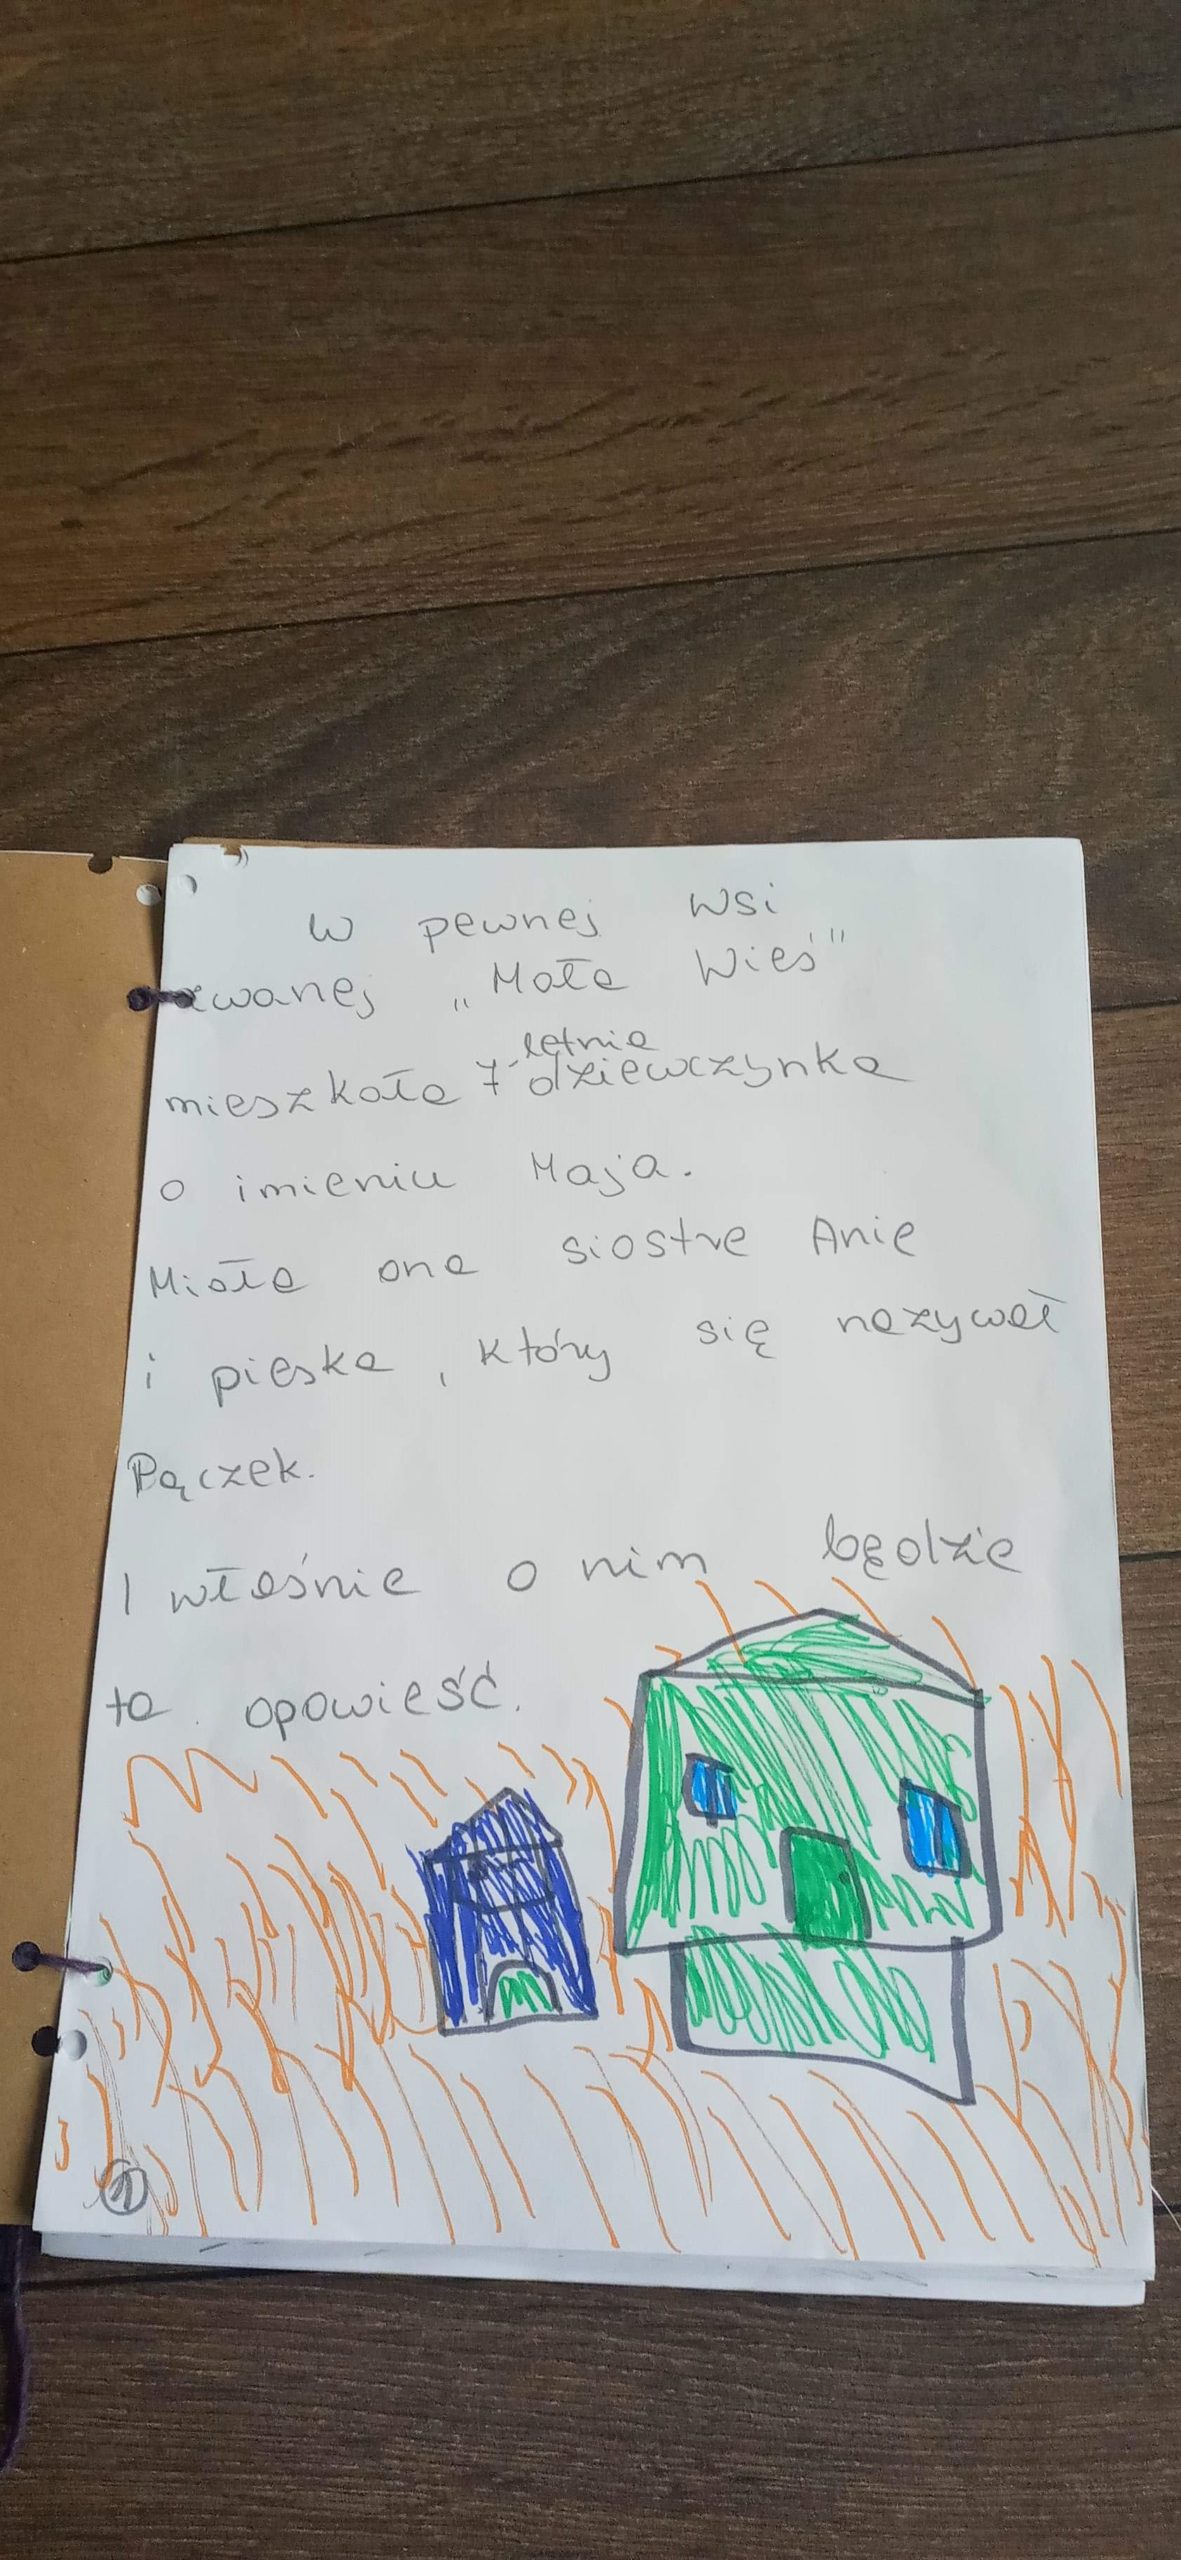 W pewnej wsi
zwanej „Mała Wieś"
mieszkała 7-letnia dziewczynka
o imieniu Maja.
Miała ona siostrę Anię
i pieska, który się nazywał
Pączek.
I właśnie o nim będzie
ta opowieść.